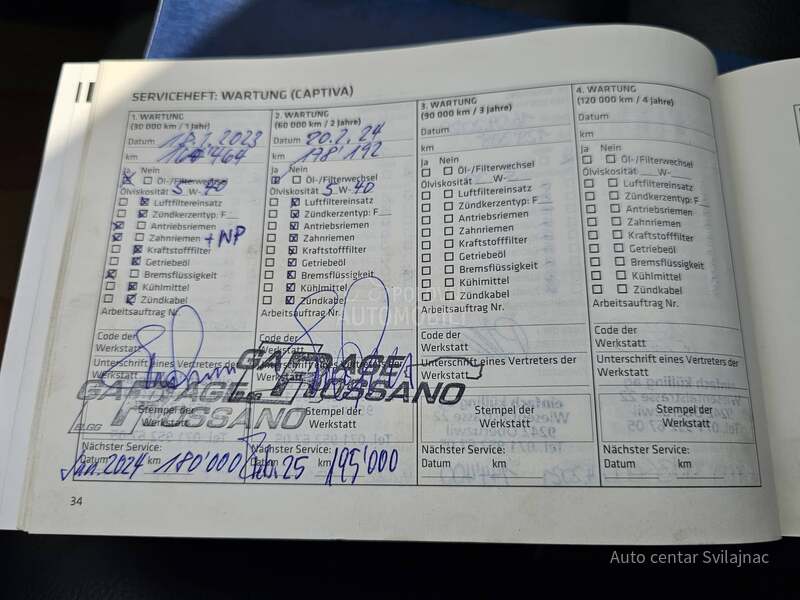 SERVICEHEFT: WARTUNG (CAPTIVA)
1. WARTUNG
(30 000 km / 1 Jahr)
Datum 2023
km 464
Ja Nein
Öl-/Filterwechsel
Ölviskosität 5 W- 40
Luftfiltereinsatz
Zündkerzentyp: F
Antriebsriemen
Zahnriemen + WP
Kraftstofffilter
Getriebeöl
Bremsflüssigkeit
Kühlmittel
Zündkabel
Arbeitsauftrag Nr.
Code der
Werkstatt
Unterschrift eines Vertreters der
Werkstatt
GARAGE
ELGG TOSSANO
Stempel der
Werkstatt
Nächster Service:
Datum Jan. 2024 km 180'000
2. WARTUNG
(60 000 km / 2 Jahre)
Datum 20.2.24
km 178'192
Ja Nein
Öl-/Filterwechsel
Ölviskosität 5 W- 40
Luftfiltereinsatz
Zündkerzentyp: F
Antriebsriemen
Zahnriemen
Kraftstofffilter
Getriebeöl
Bremsflüssigkeit
Kühlmittel
Zündkabel
Arbeitsauftrag Nr.
Code der
Werkstatt
GARAGE
ELGG TOSSANO
Stempel der
Werkstatt
Nächster Service:
Datum 25 km 195'000
3. WARTUNG
(90 000 km / 3 Jahre)
Datum
km
Ja Nein
Öl-/Filterwechsel
Ölviskosität W-
Luftfiltereinsatz
Zündkerzentyp: F
Antriebsriemen
Zahnriemen
Kraftstofffilter
Getriebeöl
Bremsflüssigkeit
Kühlmittel
Zündkabel
Arbeitsauftrag Nr.
Code der
Werkstatt
Unterschrift eines Vertreters der
Werkstatt
Stempel der
Werkstatt
Nächster Service:
Datum km
4. WARTUNG
(120 000 km / 4 Jahre)
Datum
km
Ja Nein
Öl-/Filterwechsel
Ölviskosität W-
Luftfiltereinsatz
Zündkerzentyp: F
Antriebsriemen
Zahnriemen
Kraftstofffilter
Getriebeöl
Bremsflüssigkeit
Kühlmittel
Zündkabel
Arbeitsauftrag Nr.
Code der
Werkstatt
Unterschrift eines Vertreters der
Werkstatt
Stempel der
Werkstatt
Nächster Service:
Datum km
34
Auto centar Svilajnac